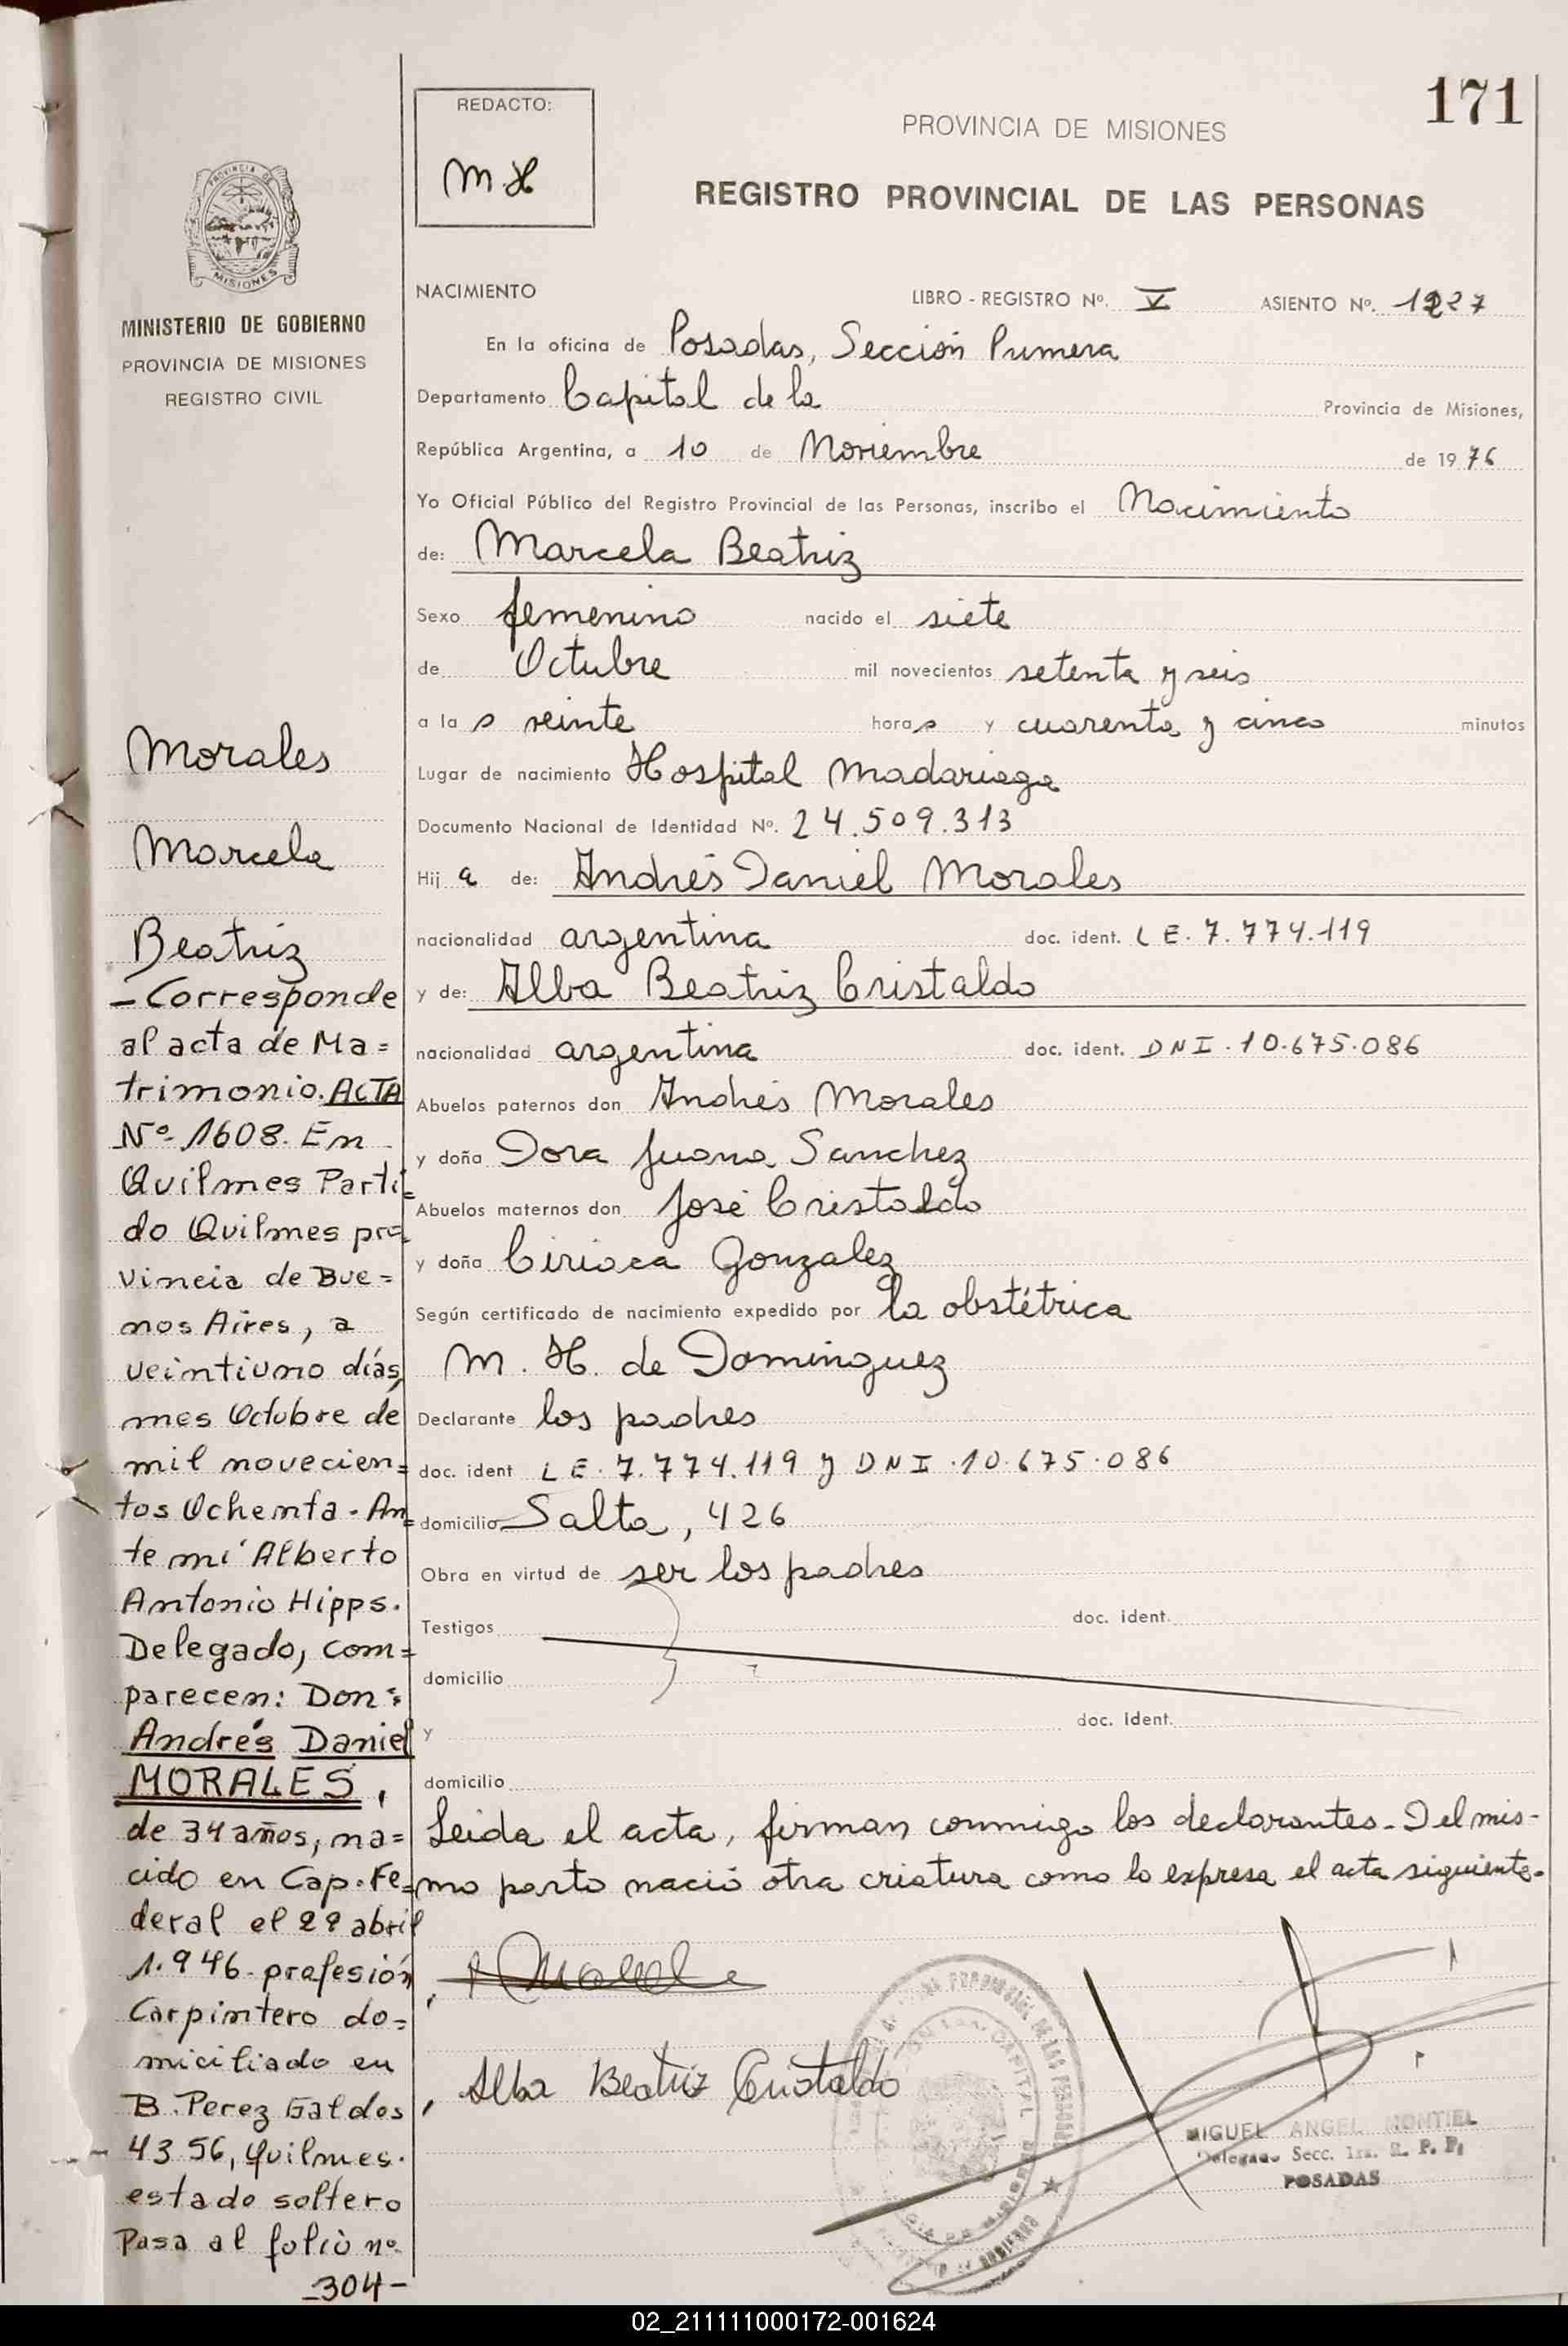 171
REDACTO:
M H
PROVINCIA DE MISIONES
REGISTRO PROVINCIAL DE LAS PERSONAS
PROVINCIA DE
MISIONES
MINISTERIO DE GOBIERNO
PROVINCIA DE MISIONES
REGISTRO CIVIL
NACIMIENTO LIBRO - REGISTRO Nº. V ASIENTO Nº. 1227
En la oficina de Posadas, Sección Primera
Departamento Capital de la Provincia de Misiones,
República Argentina, a 10 de Noviembre de 1976
Yo Oficial Público del Registro Provincial de las Personas, inscribo el Nacimiento
de: Marcela Beatriz
Sexo femenino nacido el siete
de Octubre mil novecientos setenta y seis
a la s veinte hora s y cuarenta y cinco minutos
Lugar de nacimiento Hospital Madariaga
Documento Nacional de Identidad Nº. 24.509.313
Hij a de: Andrés Daniel Morales
nacionalidad argentina doc. ident. L E. 7.774.119
y de: Alba Beatriz Cristaldo
nacionalidad argentina doc. ident. D N I . 10.675.086
Abuelos paternos don Andrés Morales
y doña Dora Juana Sanchez
Abuelos maternos don José Cristaldo
y doña Ciriaca Gonzalez
Según certificado de nacimiento expedido por la obstétrica
M. H. de Dominguez
Declarante los padres
doc. ident L E. 7.774.119 y D N I . 10.675.086
domicilio Salta, 426
Obra en virtud de ser los padres
Testigos doc. ident.
domicilio
y doc. ident.
domicilio
Leida el acta, firman conmigo los declarantes. Del mis-
mo parto nació otra criatura como lo expresa el acta siguiente.
Alba Beatriz Cristaldo
MIGUEL ANGEL MONTIEL
Delegado Secc. 1ra. R. P. P.
POSADAS
Morales
Marcela
Beatriz
- Corresponde
al acta de Ma=
trimonio. ACTA
Nº 1608. En
Quilmes Parti=
do Quilmes pro
vincia de Bue=
nos Aires, a
veintiuno días,
mes Octubre de
mil novecien=
tos Ochenta. An=
te mí Alberto
Antonio Hipps.
Delegado, com=
parecen: Don=
Andrés Daniel
MORALES,
de 34 años, na=
cido en Cap. Fe=
deral el 29 abril
1.946. profesión
Carpintero do=
miciliado en
B. Perez Galdos
4356, Quilmes.
estado soltero
Pasa al folio nº
-304-
02_211111000172-001624